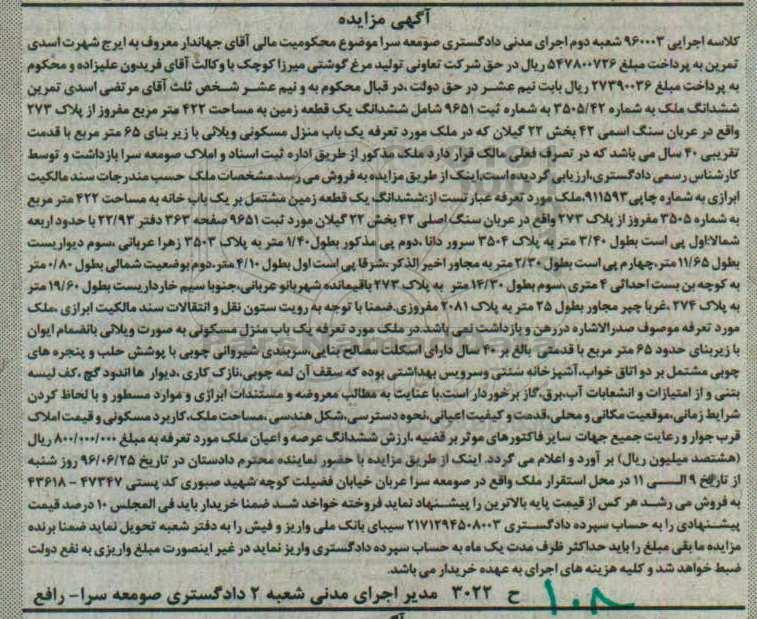 آگهی مزایده
کلاسه اجرایی ۹۶۰۰۰۳ شعبه دوم اجرای مدنی دادگستری صومعه سرا موضوع محکومیت مالی آقای جهاندار معروف به ایرج شهرت اسدی
تمرین به پرداخت مبلغ ۵۴۷۸۰۰۷۲۶ ریال در حق شرکت تعاونی تولید مرغ گوشتی میرزا کوچک با وکالت آقای فریدون علیزاده و محکوم
به پرداخت مبلغ ۲۷۳۹۰۰۳۶ ریال بابت نیم عشر در حق دولت ،در قبال محکوم به و نیم عشر شخص ثلث آقای مرتضی اسدی تمرین
ششدانگ ملک به شماره ۳۵۰۵/۴۲ به شماره ثبت ۹۶۵۱ شامل ششدانگ یک قطعه زمین به مساحت ۴۲۲ متر مربع مفروز از پلاک ۲۷۳
واقع در عربان سنگ اسمی ۴۲ بخش ۲۲ گیلان که در ملک مورد تعرفه یک باب منزل مسکونی ویلائی با زیر بنای ۶۵ متر مربع با قدمت
تقریبی ۴۰ سال می باشد که در تصرف فعلی مالک قرار دارد ملک مذکور از طریق اداره ثبت اسناد و املاک صومعه سرا بازداشت و توسط
کارشناس رسمی دادگستری،ارزیابی گردیده است،اینک از طریق مزایده به فروش می رسد.مشخصات ملک حسب مندرجات سند مالکیت
ابرازی به شماره چاپی ۹۱۱۵۹۳،ملک مورد تعرفه عبارتست از:ششدانگ یک قطعه زمین مشتمل بر یک باب خانه به مساحت ۴۲۲ متر مربع
به شماره ۳۵۰۵ مفروز از پلاک ۲۷۳ واقع در عربان سنگ اصلی ۴۲ بخش ۲۲ گیلان مورد ثبت ۹۶۵۱ صفحه ۳۶۳ دفتر ۲۲/۹۳ با حدود اربعه
شمالا:اول پی است بطول ۳/۴۰ متر به پلاک ۳۵۰۴ سرور دانا ،دوم پی مذکور بطول۱/۴۰ متر به پلاک ۳۵۰۳ زهرا عربانی ،سوم دیواریست
بطول ۱۱/۶۵ متر،چهارم پی است بطول ۲/۳۰ متر به مجاور اخیر الذکر،شرقا پی است اول بطول ۴/۱۰ متر،دوم بوضعیت شمالی بطول ۰/۸۰ متر
به کوچه بن بست احداثی ۴ متری ،سوم بطول ۱۴/۳۰ متر به پلاک ۲۷۳ باقیمانده شهربانو عربانی،جنوبا سیم خارداریست بطول ۱۹/۶۰ متر
به پلاک ۲۷۴ ،غربا چپر مجاور بطول ۲۵ متر به پلاک ۲۰۸۱ مفروزی.ضمنا با توجه به رویت ستون نقل و انتقالات سند مالکیت ابرازی ،ملک
مورد تعرفه موصوف صدرالاشاره در رهن و بازداشت نمی باشد.در ملک مورد تعرفه یک باب منزل مسکونی به صورت ویلائی بانضمام ایوان
با زیربنای حدود ۶۵ متر مربع با قدمتی بالغ بر ۴۰ سال دارای اسکلت مصالح بنایی،سربندی شیروانی چوبی با پوشش حلب و پنجره های
چوبی مشتمل بر دو اتاق خواب،آشپزخانه سنتی وسرویس بهداشتی بوده که سقف آن لمه چوبی،نازک کاری ،دیوار ها اندود گچ ،کف لیسه
بتنی و از امتیازات و انشعابات آب،برق،گاز برخوردار است.با عنایت به مطالب معروضه و مستندات ابرازی و موارد مسطور و با لحاظ کردن
شرایط زمانی،موقعیت مکانی و محلی،قدمت و کیفیت اعیانی،نحوه دسترسی،شکل هندسی،مساحت ملک،کاربرد مسکونی و قیمت املاک
قرب جوار و رعایت جمیع جهات سایر فاکتورهای موثر بر قضیه ،ارزش ششدانگ عرصه و اعیان ملک مورد تعرفه به مبلغ ۸۰۰/۰۰۰/۰۰۰ ریال
(هشتصد میلیون ریال) بر آورد و اعلام می گردد. اینک از طریق مزایده با حضور نماینده محترم دادستان در تاریخ ۹۶/۰۶/۲۵ روز شنبه
از تاریخ ۹ الی ۱۱ در محل استقرار ملک واقع در صومعه سرا عربان خیابان فضیلت کوچه شهید صبوری کد پستی ۴۷۳۴۷ - ۴۳۶۱۸
به فروش می رشد هر کس از قیمت پایه بالاترین را پیشنهاد نماید فروخته خواخد شد ضمنا خریدار باید فی المجلس ۱۰ درصد قیمت
پیشنهادی را به حساب سپرده دادگستری ۲۱۷۱۲۹۴۵۰۸۰۰۳ سیبای بانک ملی واریز و فیش را به دفتر شعبه تحویل نماید ضمنا برنده
مزایده ما بقی مبلغ را باید حداکثر ظرف مدت یک ماه به حساب سپرده دادگستری واریز نماید در غیر اینصورت مبلغ واریزی به نفع دولت
ضبط خواهد شد و کلیه هزینه های اجرای به عهده خریدار می باشد.
ح ۳۰۲۲ مدیر اجرای مدنی شعبه ۲ دادگستری صومعه سرا- رافع
۱۰۸
ParsNamadData